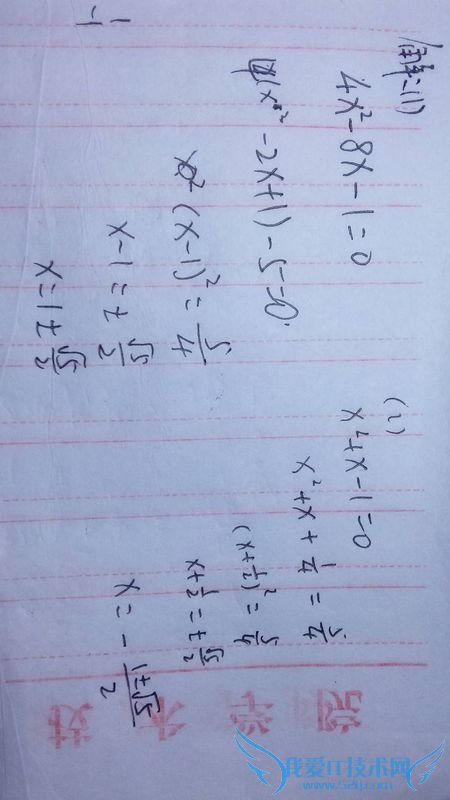 解:(1)
4x²-8x-1=0
4(x²-2x+1)-5=0
(x-1)²=5/4
x-1=±√5/2
x=1±√5/2
(2)
x²+x-1=0
x²+x+1/4=5/4
(x+1/2)²=5/4
x+1/2=±√5/2
x=-1±√5/2
我爱IT技术网
www.52ij.com